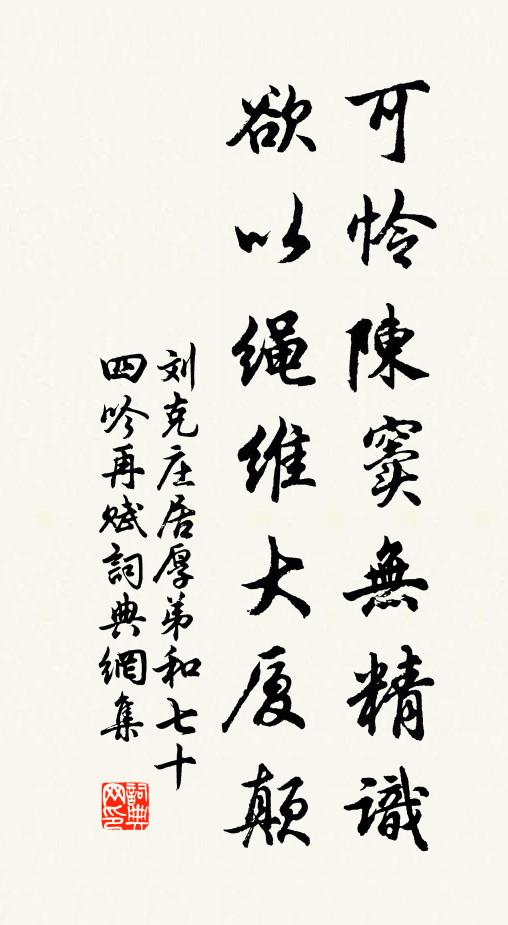 可怜陳竇無精識
欲以绳维大厦颠
刘克庄居厚弟和七十
四吟再赋詞典網集
詞典网印